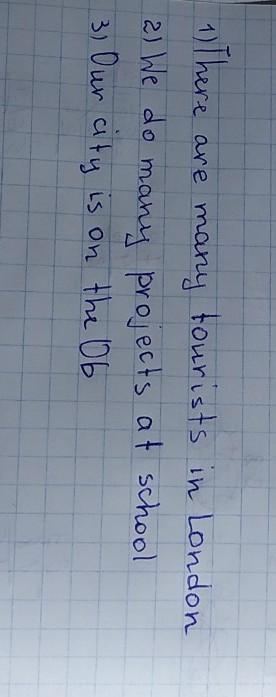 1) There are many tourists in London
2) We do many projects at school
3) Our city is on the Ob